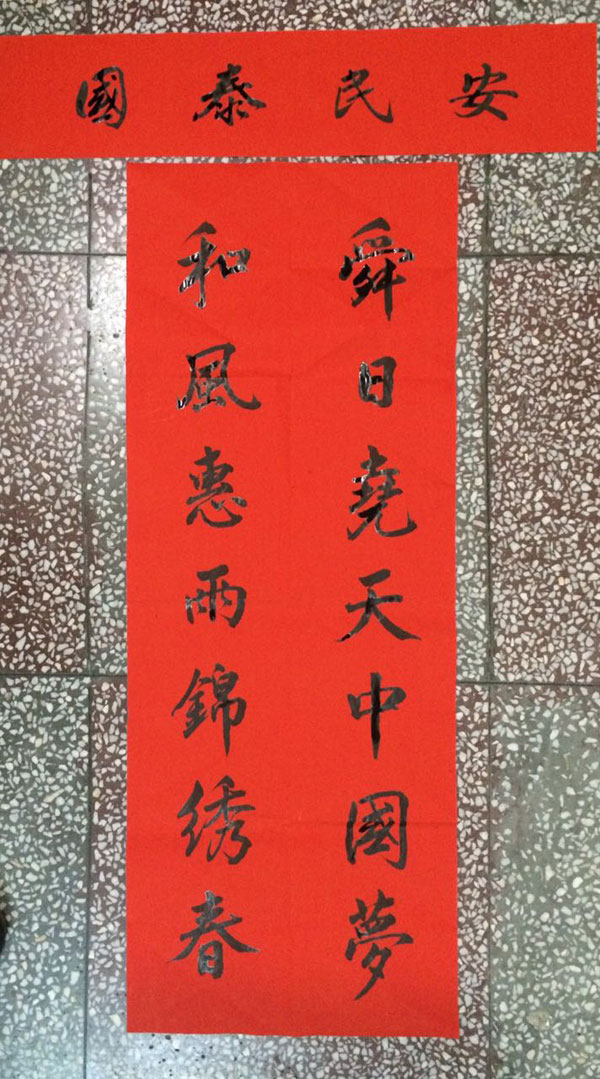 國泰民安
舜日堯天中國夢
和風惠雨錦綉春